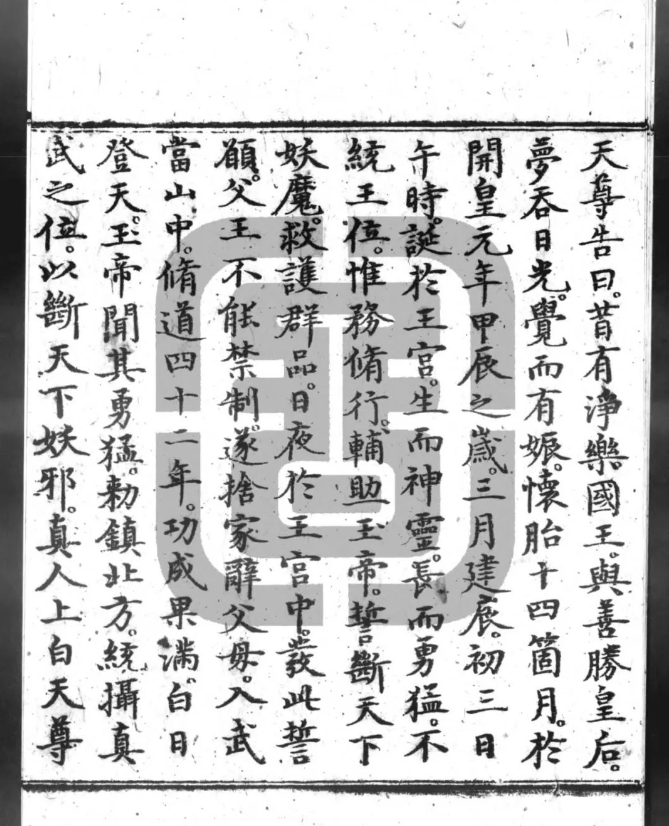 天尊告曰。昔有淨樂國王。與善勝皇后。
夢吞日光。覺而有娠。懷胎十四箇月。於
開皇元年甲辰之歲。三月建辰。初三日
午時。誕於王宮。生而神靈。長而勇猛。不
統王位。惟務脩行。輔助玉帝。誓斷天下
妖魔。救護群品。日夜於王宮中。發此誓
願。父王不能禁制。遂捨家辭父母。入武
當山中。脩道四十二年。功成果滿。白日
登天。玉帝聞其勇猛。勑鎮北方。統攝真
武之位。以斷天下妖邪。真人上白天尊